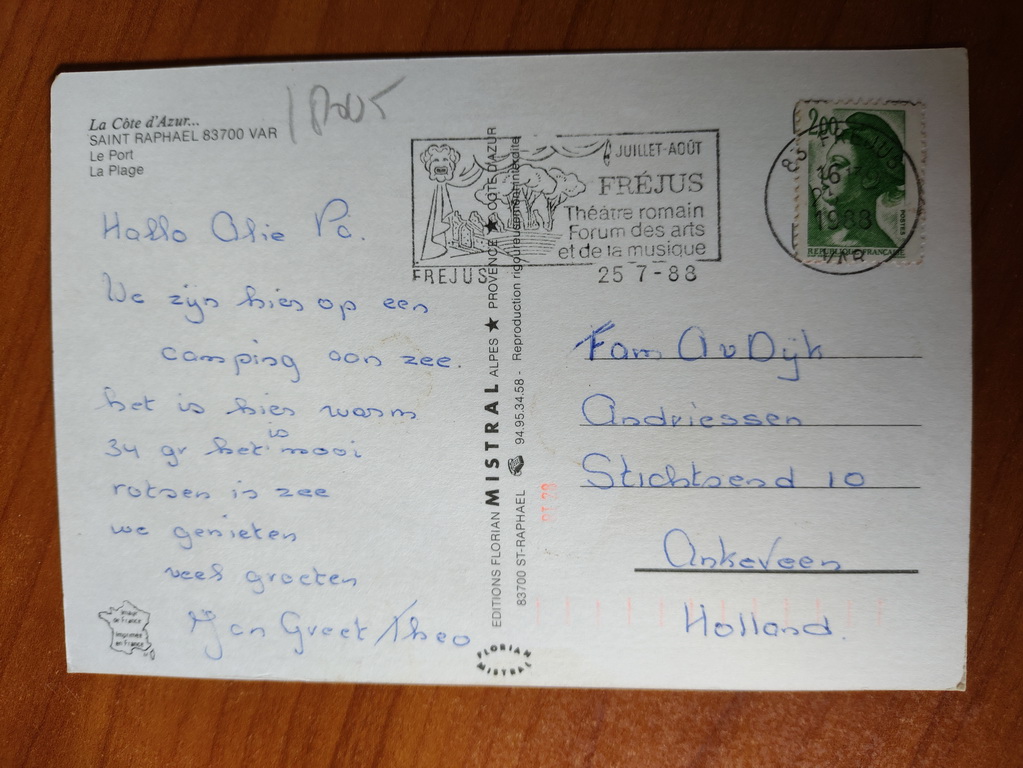 La Côte d'Azur...
SAINT RAPHAEL 83700 VAR
Le Port
La Plage
Hallo Alie Pa.
We zijn hier op een
camping aan zee.
het is hier warm
34 gr het is mooi
rotsen is zee
we genieten
veel groeten
Jan Greet Theo
Imprimé en France
EDITIONS FLORIAN MISTRAL ALPES ★ PROVENCE ★ COTE D'AZUR
83700 ST-RAPHAEL ☎ 94.95.34.58 - Reproduction rigoureusement interdite
FLORIAN MISTRAL
JUILLET-AOÛT
FRÉJUS
Théâtre romain
Forum des arts
et de la musique
FREJUS
25 7-88
2,00
POSTES
REPUBLIQUE FRANÇAISE
83 FREJUS
16 H
1988
VAR
Fam A v Dijk
Andriessen
Stichtsend 10
Ankeveen
Holland.